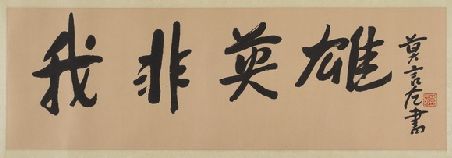 我非英雄
莫言左書